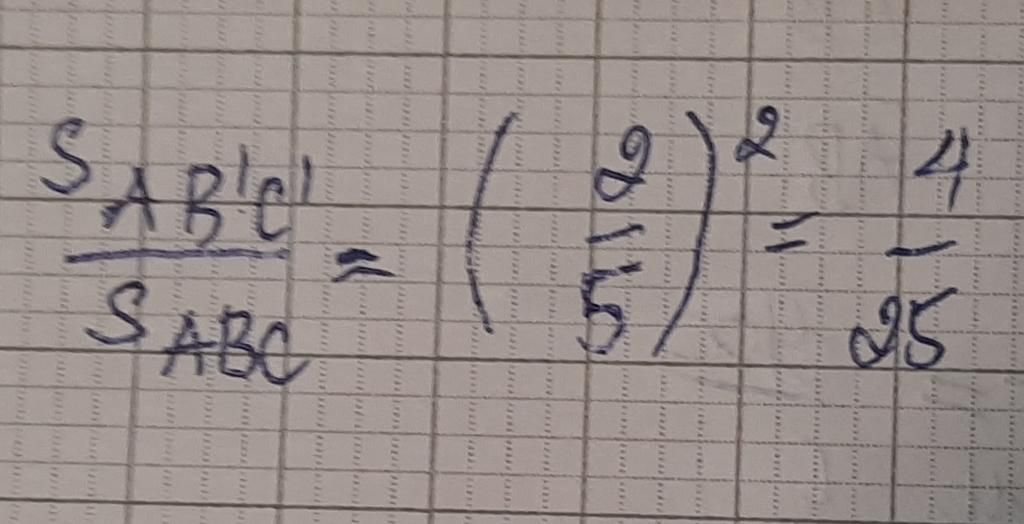 S AB'C' / S ABC = (2/5)² = 4/25